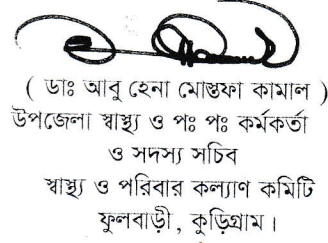 ( ডাঃ আবু হেনা মোস্তফা কামাল )
উপজেলা স্বাস্থ্য ও পঃ পঃ কর্মকর্তা
ও সদস্য সচিব
স্বাস্থ্য ও পরিবার কল্যাণ কমিটি
ফুলবাড়ী , কুড়িগ্রাম ।